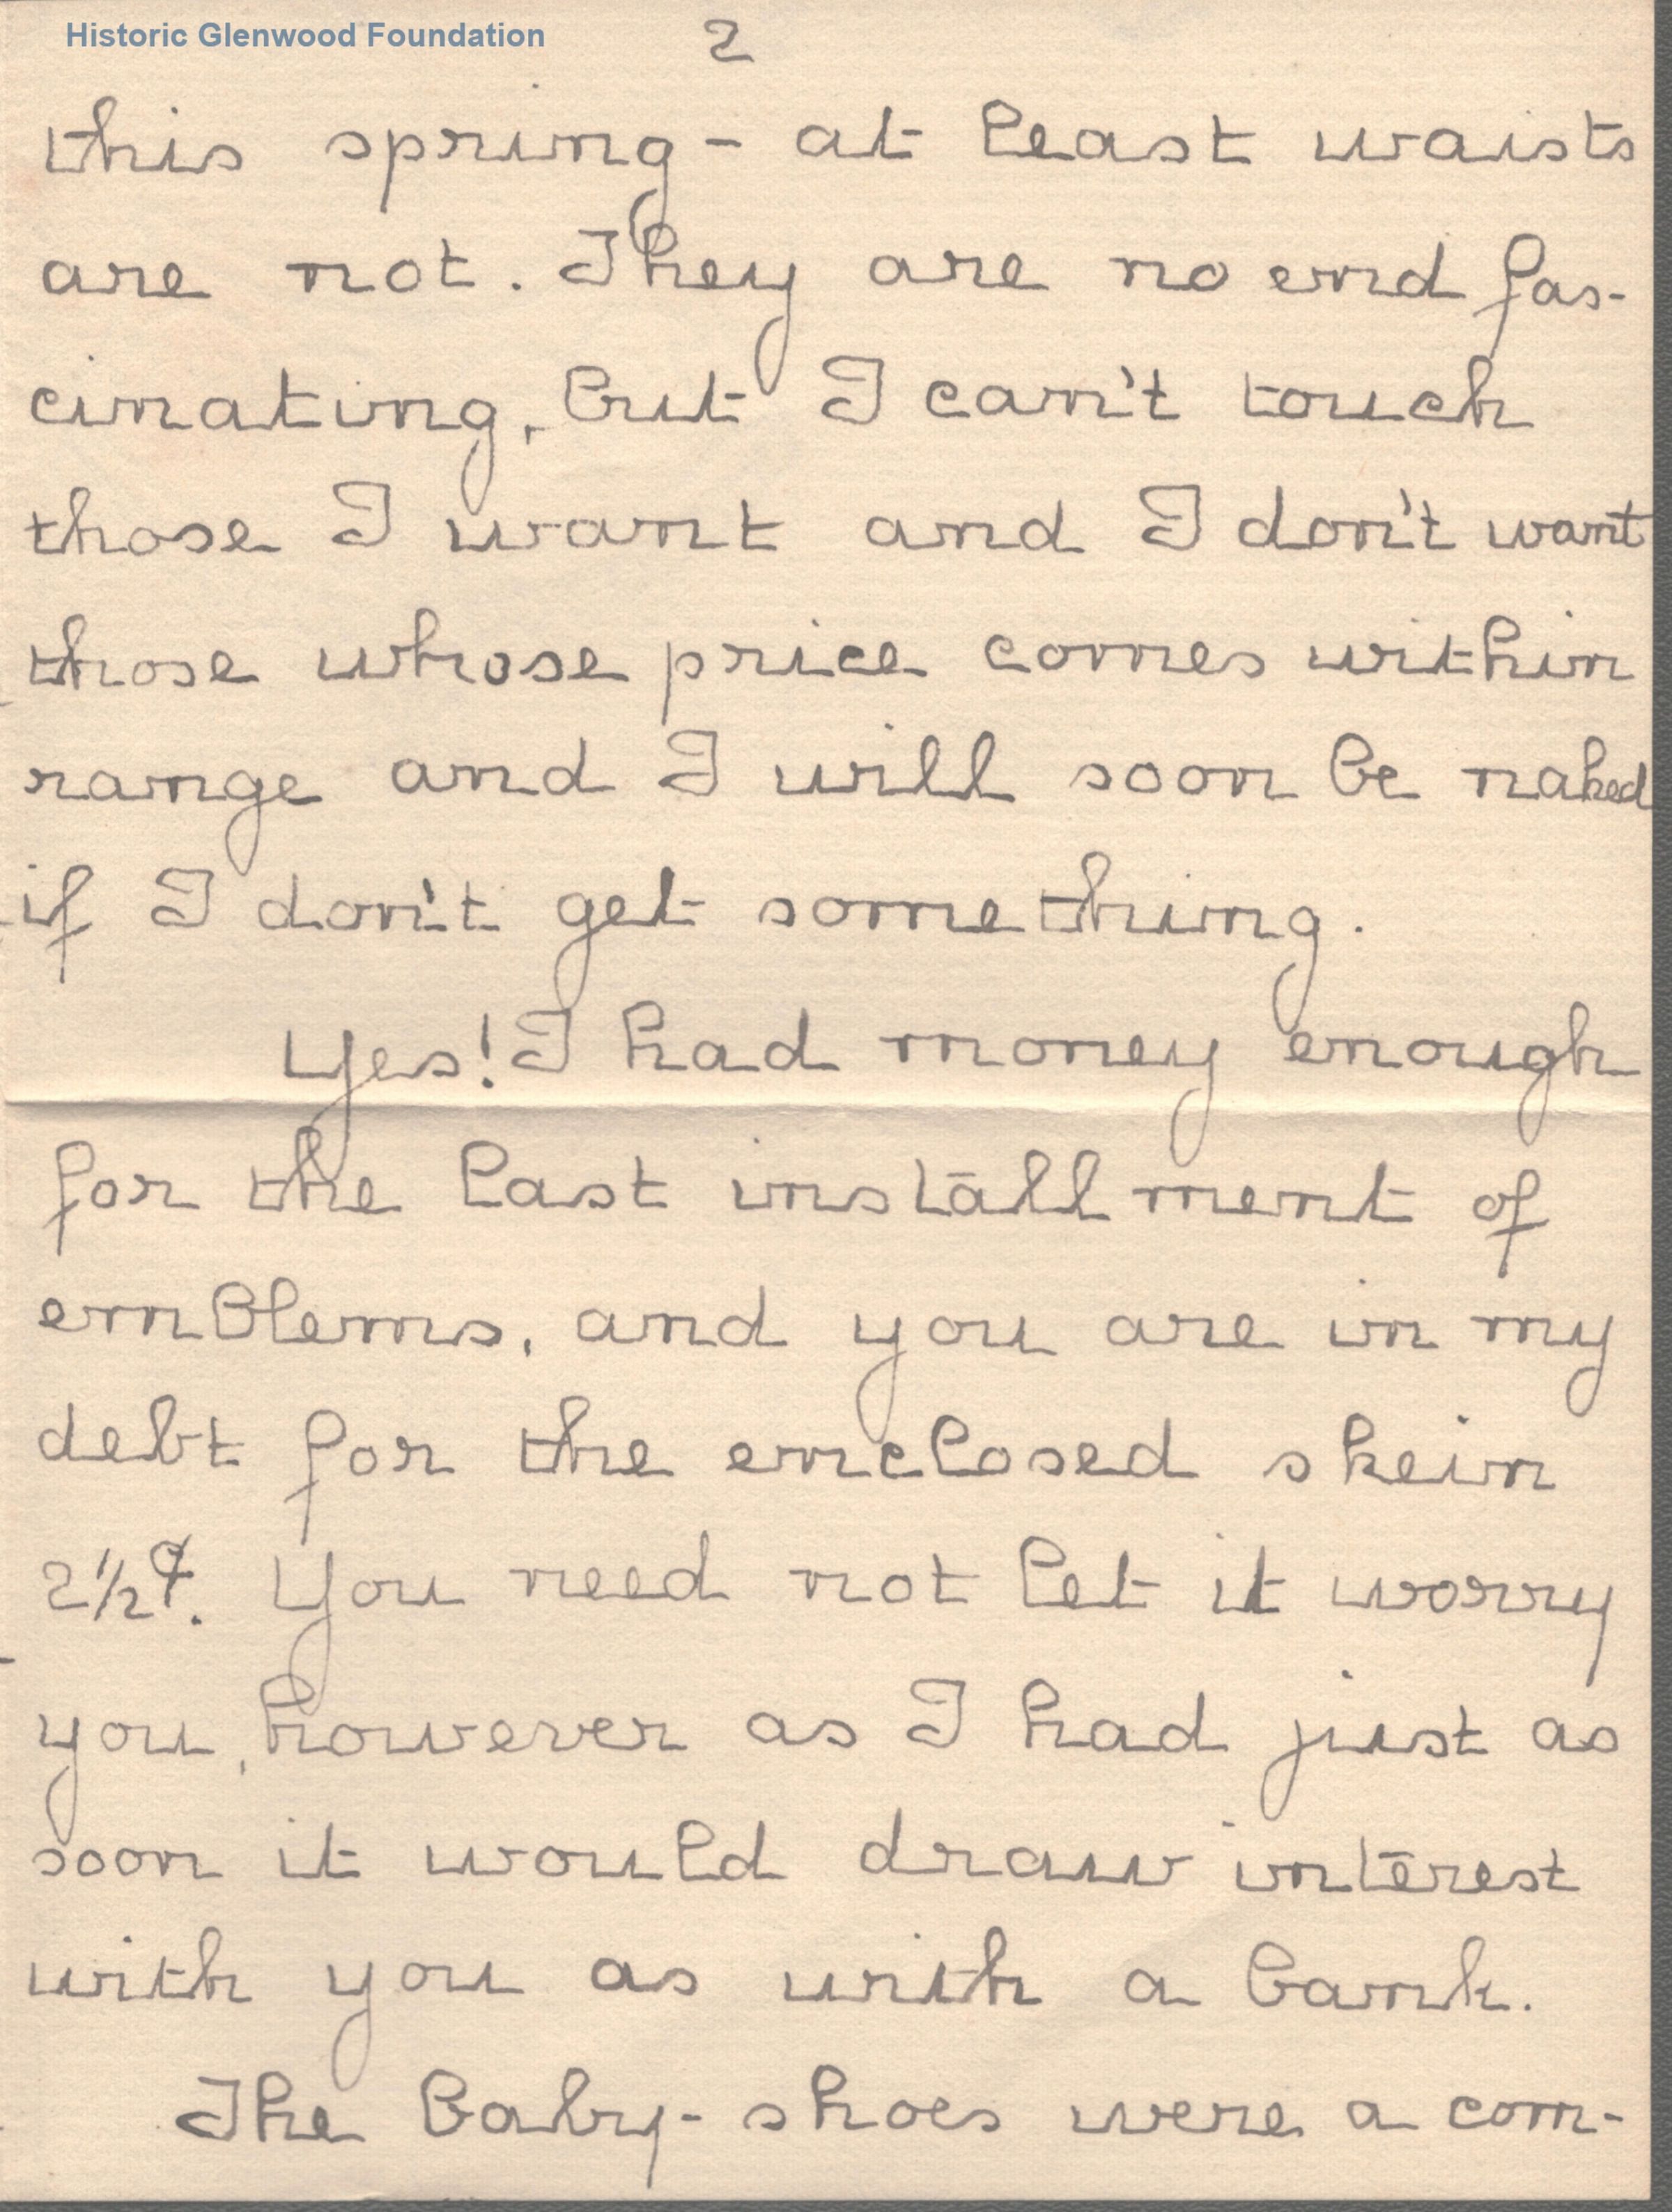 Historic Glenwood Foundation
2
this spring - at least waists
are not. They are no end fas-
cinating, but I can't touch
those I want and I don't want
those whose price comes within
range and I will soon be naked
if I don't get something.
Yes! I had money enough
for the last installment of
emblems, and you are in my
debt for the enclosed skein
2½¢. You need not let it worry
you, however as I had just as
soon it would draw interest
with you as with a bank.
The baby-shoes were a com-